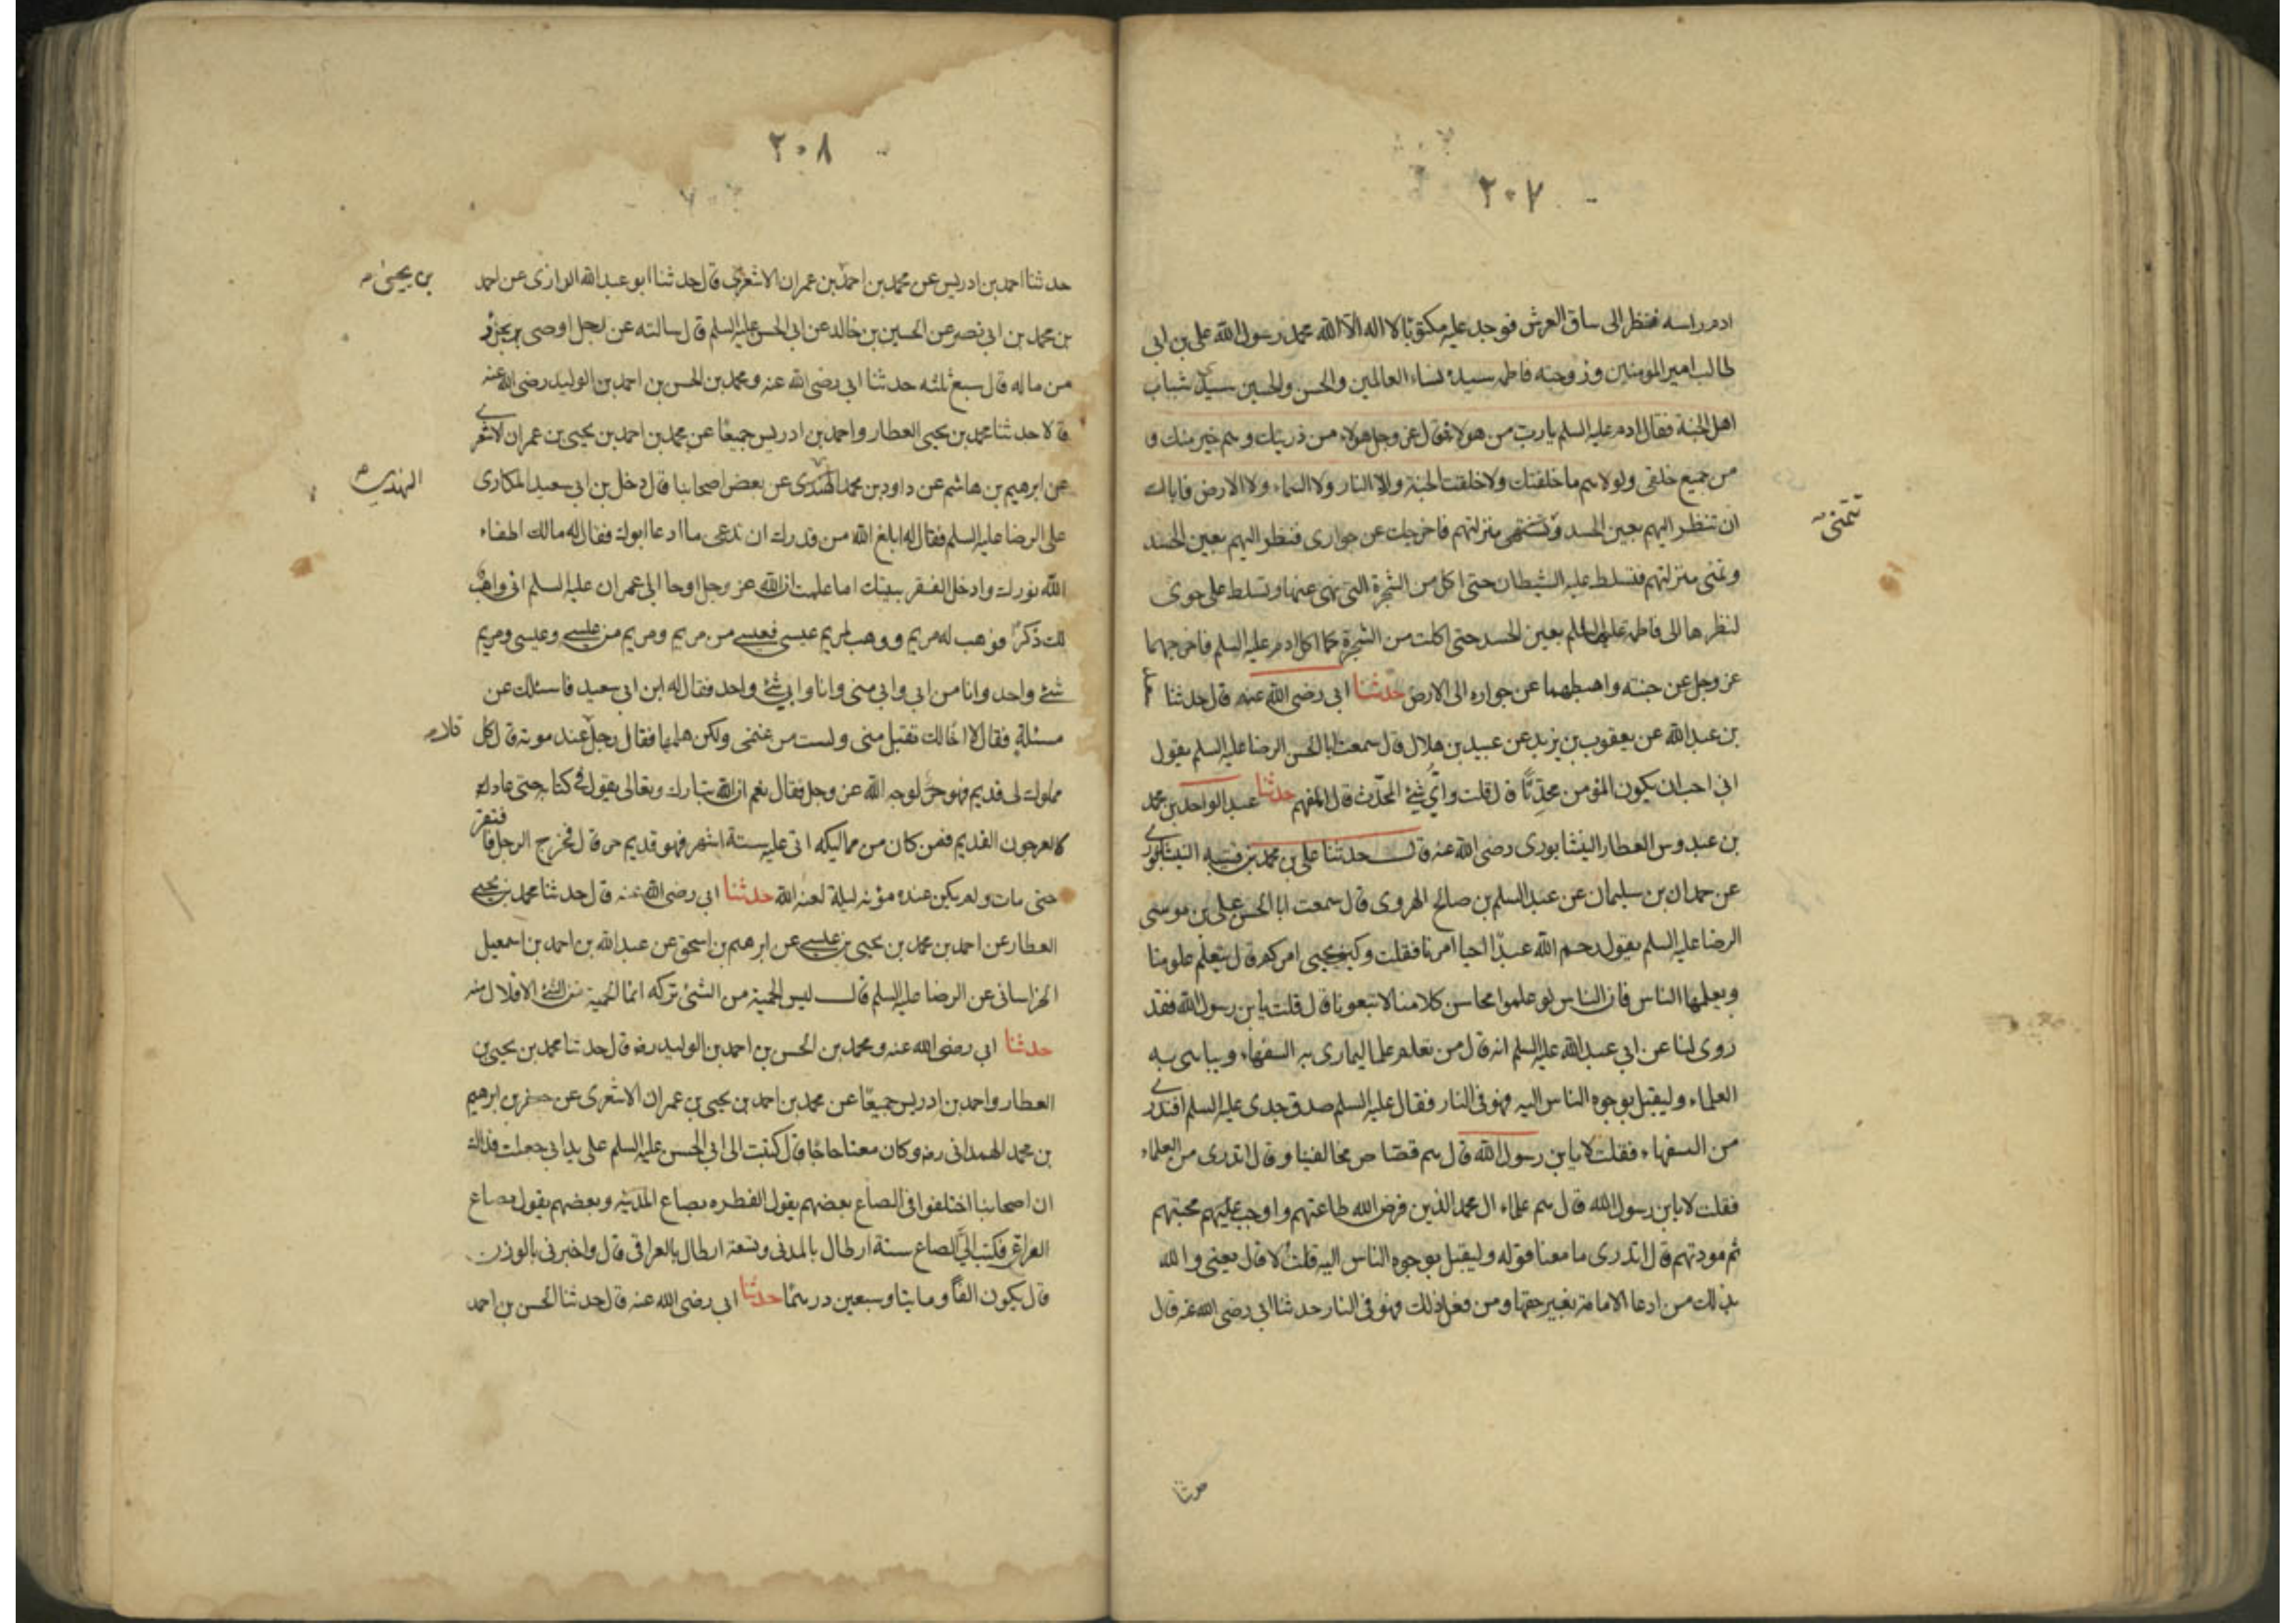 ٢٠٧
ادم راسه فنظر الى ساق العرش فوجد عليه مكتوبًا لا اله الا الله محمد رسول الله على بن ابى
طالب امير المومنين وزوجته فاطمه سيدة نساء العالمين والحسن والحسين سيدى شباب
اهل الجنة فقال ادم عليه السلم يارب من هولاء فقال عز وجل هولاء من ذريتك وهم خير منك و
من جميع خلقى ولولا هم ما خلقتك ولا خلقت الجنة ولا النار ولا السماء ولا الارض فاياك
ان تنظر اليهم بعين الحسد و منزلتهم فاخرجك عن جوارى فنظر اليهم بعين الحسد
تتمنى
وتمنى منزلتهم فتسلط عليه الشيطان حتى اكل من الشجرة التى نهى عنها وتسلط على حوى
لنظرها الى فاطمه عليها السلم بعين الحسد حتى اكلت من الشجرة كما اكل ادم عليه السلم فاخرجهما
عز وجل عن جنته واهبطهما عن جواره الى الارض حدثنا ابى رضى الله عنه قال حدثنا
بن عبد الله عن يعقوب بن يزيد عن عبيد بن هلال قال سمعت ابا الحسن الرضا عليه السلم يقول
انى احب ان يكون المؤمن محدثًا قال قلت واى شئ المحدث قال المفهم حدثنا عبد الواحد بن محمد
بن عبدوس العطار النيشابورى رضى الله عنه قال حدثنا على بن محمد بن قتيبه النيشابورى
عن حمدان بن سليمان عن عبد السلم بن صالح الهروى قال سمعت ابا الحسن على بن موسى
الرضا عليه السلم يقول رحم الله عبدًا احيا امرنا فقلت وكيف يحيى امركم قال يتعلم علومنا
ويعلمها الناس فان الناس لو علموا محاسن كلامنا لاتبعونا قال قلت يا بن رسول الله فقد
روى لنا عن ابى عبد الله عليه السلم انه قال من تعلم علما ليمارى به السفهاء ويباهى به
العلماء وليقبل بوجوه الناس اليه فهو فى النار فقال عليه السلم صدق جدى عليه السلم افتدرى
من السفهاء فقلت لا يا بن رسول الله قال هم قصّاص مخالفينا وقال اتدرى من العلماء
فقلت لا يا بن رسول الله قال هم علماء ال محمد الذين فرض الله طاعتهم واوجب عليهم محبتهم
ثم مودتهم قال اتدرى ما معنا قوله وليقبل بوجوه الناس اليه قلت لا قال يعنى والله
بذلك من ادعا الامامة بغير حقها ومن فعل ذلك فهو فى النار حدثنا ابى رضى الله عنه قال
٢٠٨
حدثنا احمد بن ادريس عن محمد بن احمد بن عمران الاشعرى قال حدثنا ابو عبد الله الرازى عن احمد
بن يحيى
بن محمد بن ابى نصر عن الحسين بن خالد عن ابى الحسن عليه السلم قال سالته عن رجل اوصى بجزؤ
من ماله قال سبع ثلثه حدثنا ابى رضى الله عنه ومحمد بن الحسن بن احمد بن الوليد رضى الله عنه
قالا حدثنا محمد بن يحيى العطار واحمد بن ادريس جميعًا عن محمد بن احمد بن يحيى بن عمران الاشعرى
عن ابرهيم بن هاشم عن داود بن محمد عن بعض اصحابنا قال دخل بن ابى سعيد المكارى
النهدى
على الرضا عليه السلم فقال له ابلغ الله من قدرك ان تدعى ما ادعا ابوك فقال له مالك اطفاء
الله نورك وادخل الفقر بيتك اما علمت ان الله عز وجل اوحا الى عمران عليه السلم انى واهب
لك ذكرًا فوهب له مريم ووهب لمريم عيسى فعيسى من مريم ومريم من عيسى وعيسى ومريم
شئ واحد وانا من ابى وابى منى وانا وابى شئ واحد فقال له ابن ابى سعيد فاسئلك عن
مسئلة فقال لا اخالك تقبل منى ولست من غنمى ولكن هلمها فقال رجل عند موته قال كل
مملوك لى قديم فهو حر لوجه الله عز وجل فقال نعم ان الله تبارك وتعالى يقول فى كتابه حتى عاد
كالعرجون القديم فمن كان من مماليكه اتى عليه ستة اشهر فهو قديم حر قال فخرج الرجل فافتقر
حتى مات ولم يكن عنده مؤنه ليلة لعنه الله حدثنا ابى رضى الله عنه قال حدثنا محمد بن يحيى
العطار عن احمد بن محمد بن يحيى بن عيسى عن ابرهيم بن اسحق عن عبد الله بن احمد بن اسمعيل
الخراسانى عن الرضا عليه السلم قال ليس الحمية من الشئ تركه انما الحمية من الشئ الاقلال منه
حدثنا ابى رضى الله عنه ومحمد بن الحسن بن احمد بن الوليد رضه قال حدثنا محمد بن يحيى بن
العطار واحمد بن ادريس جميعًا عن محمد بن احمد بن يحيى بن عمران الاشعرى عن جعفر بن ابرهيم
بن محمد الهمدانى رضه وكان معنا حاجًا قال كتبت الى ابى الحسن عليه السلم على يد ابى جعلت فداك
ان اصحابنا اختلفوا فى الصاع بعضهم يقول الفطره بصاع المدينه وبعضهم يقول بصاع
العراق فكتب الىّ الصاع ستة ارطال بالمدنى وتسعة ارطال بالعراقى قال واخبرنى بالوزن
قال يكون الفًا ومايتا وسبعين درهمًا حدثنا ابى رضى الله عنه قال حدثنا الحسن بن احمد